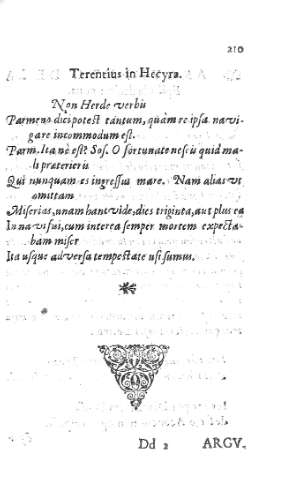 210
Terentius in Hecyra.
Non Herde verbis
Parmeno dici potest tantum, quam re ipsa navi-
gare incommodum est.
Parm. Ita nè est? Sos. O fortunate nescis quid ma-
li præterieris
Qui nunquam es ingressus mare. Nam alias vt
omittam
Miserias, unam hanc vide, dies triginta, aut plus ea
In navi fui, cum interea semper mortem expecta-
bam miser
Ita usque adversa tempestate usi sumus.
*
Dd 2 ARGV.